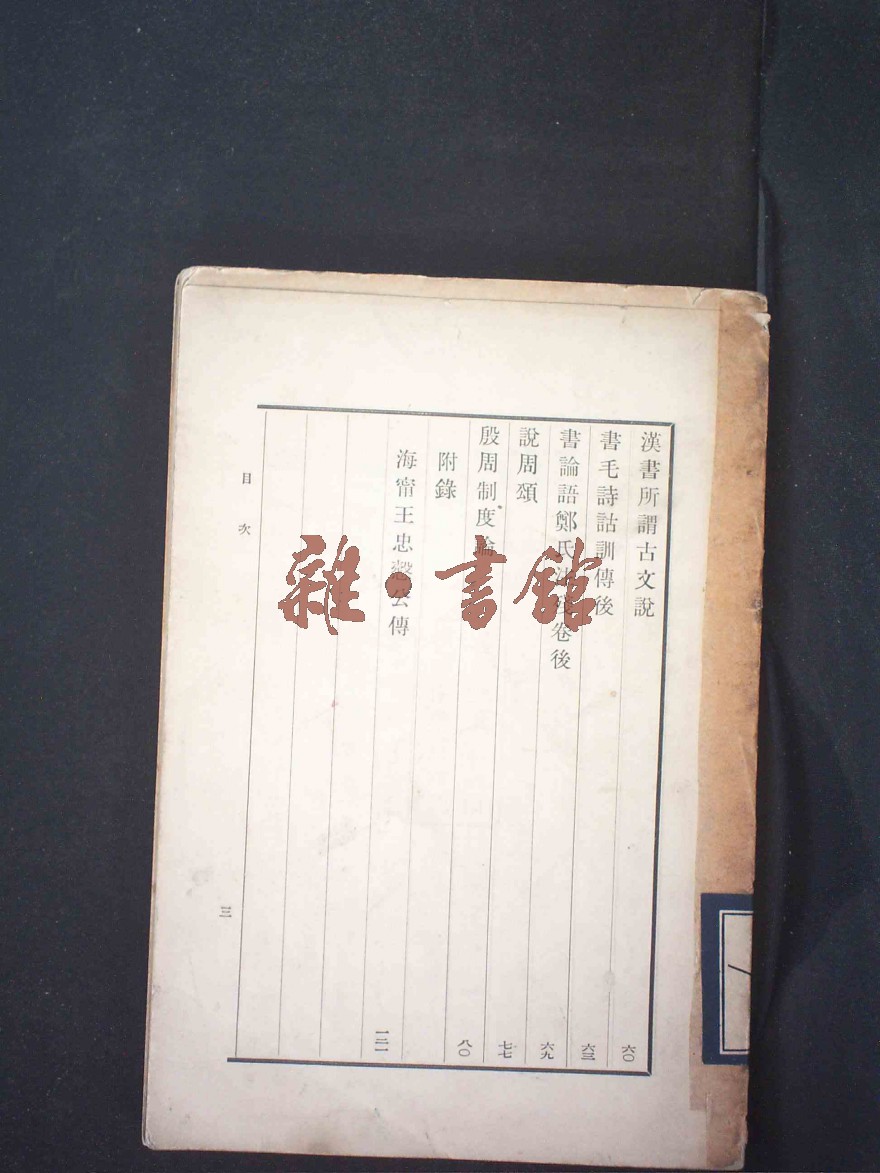 漢書所謂古文說 六〇
書毛詩詁訓傳後 六三
書論語鄭氏注殘卷後 六九
說周頌 七七
殷周制度論 八〇
附錄
海甯王忠慤公傳 一二一
目次
三
雜·書館